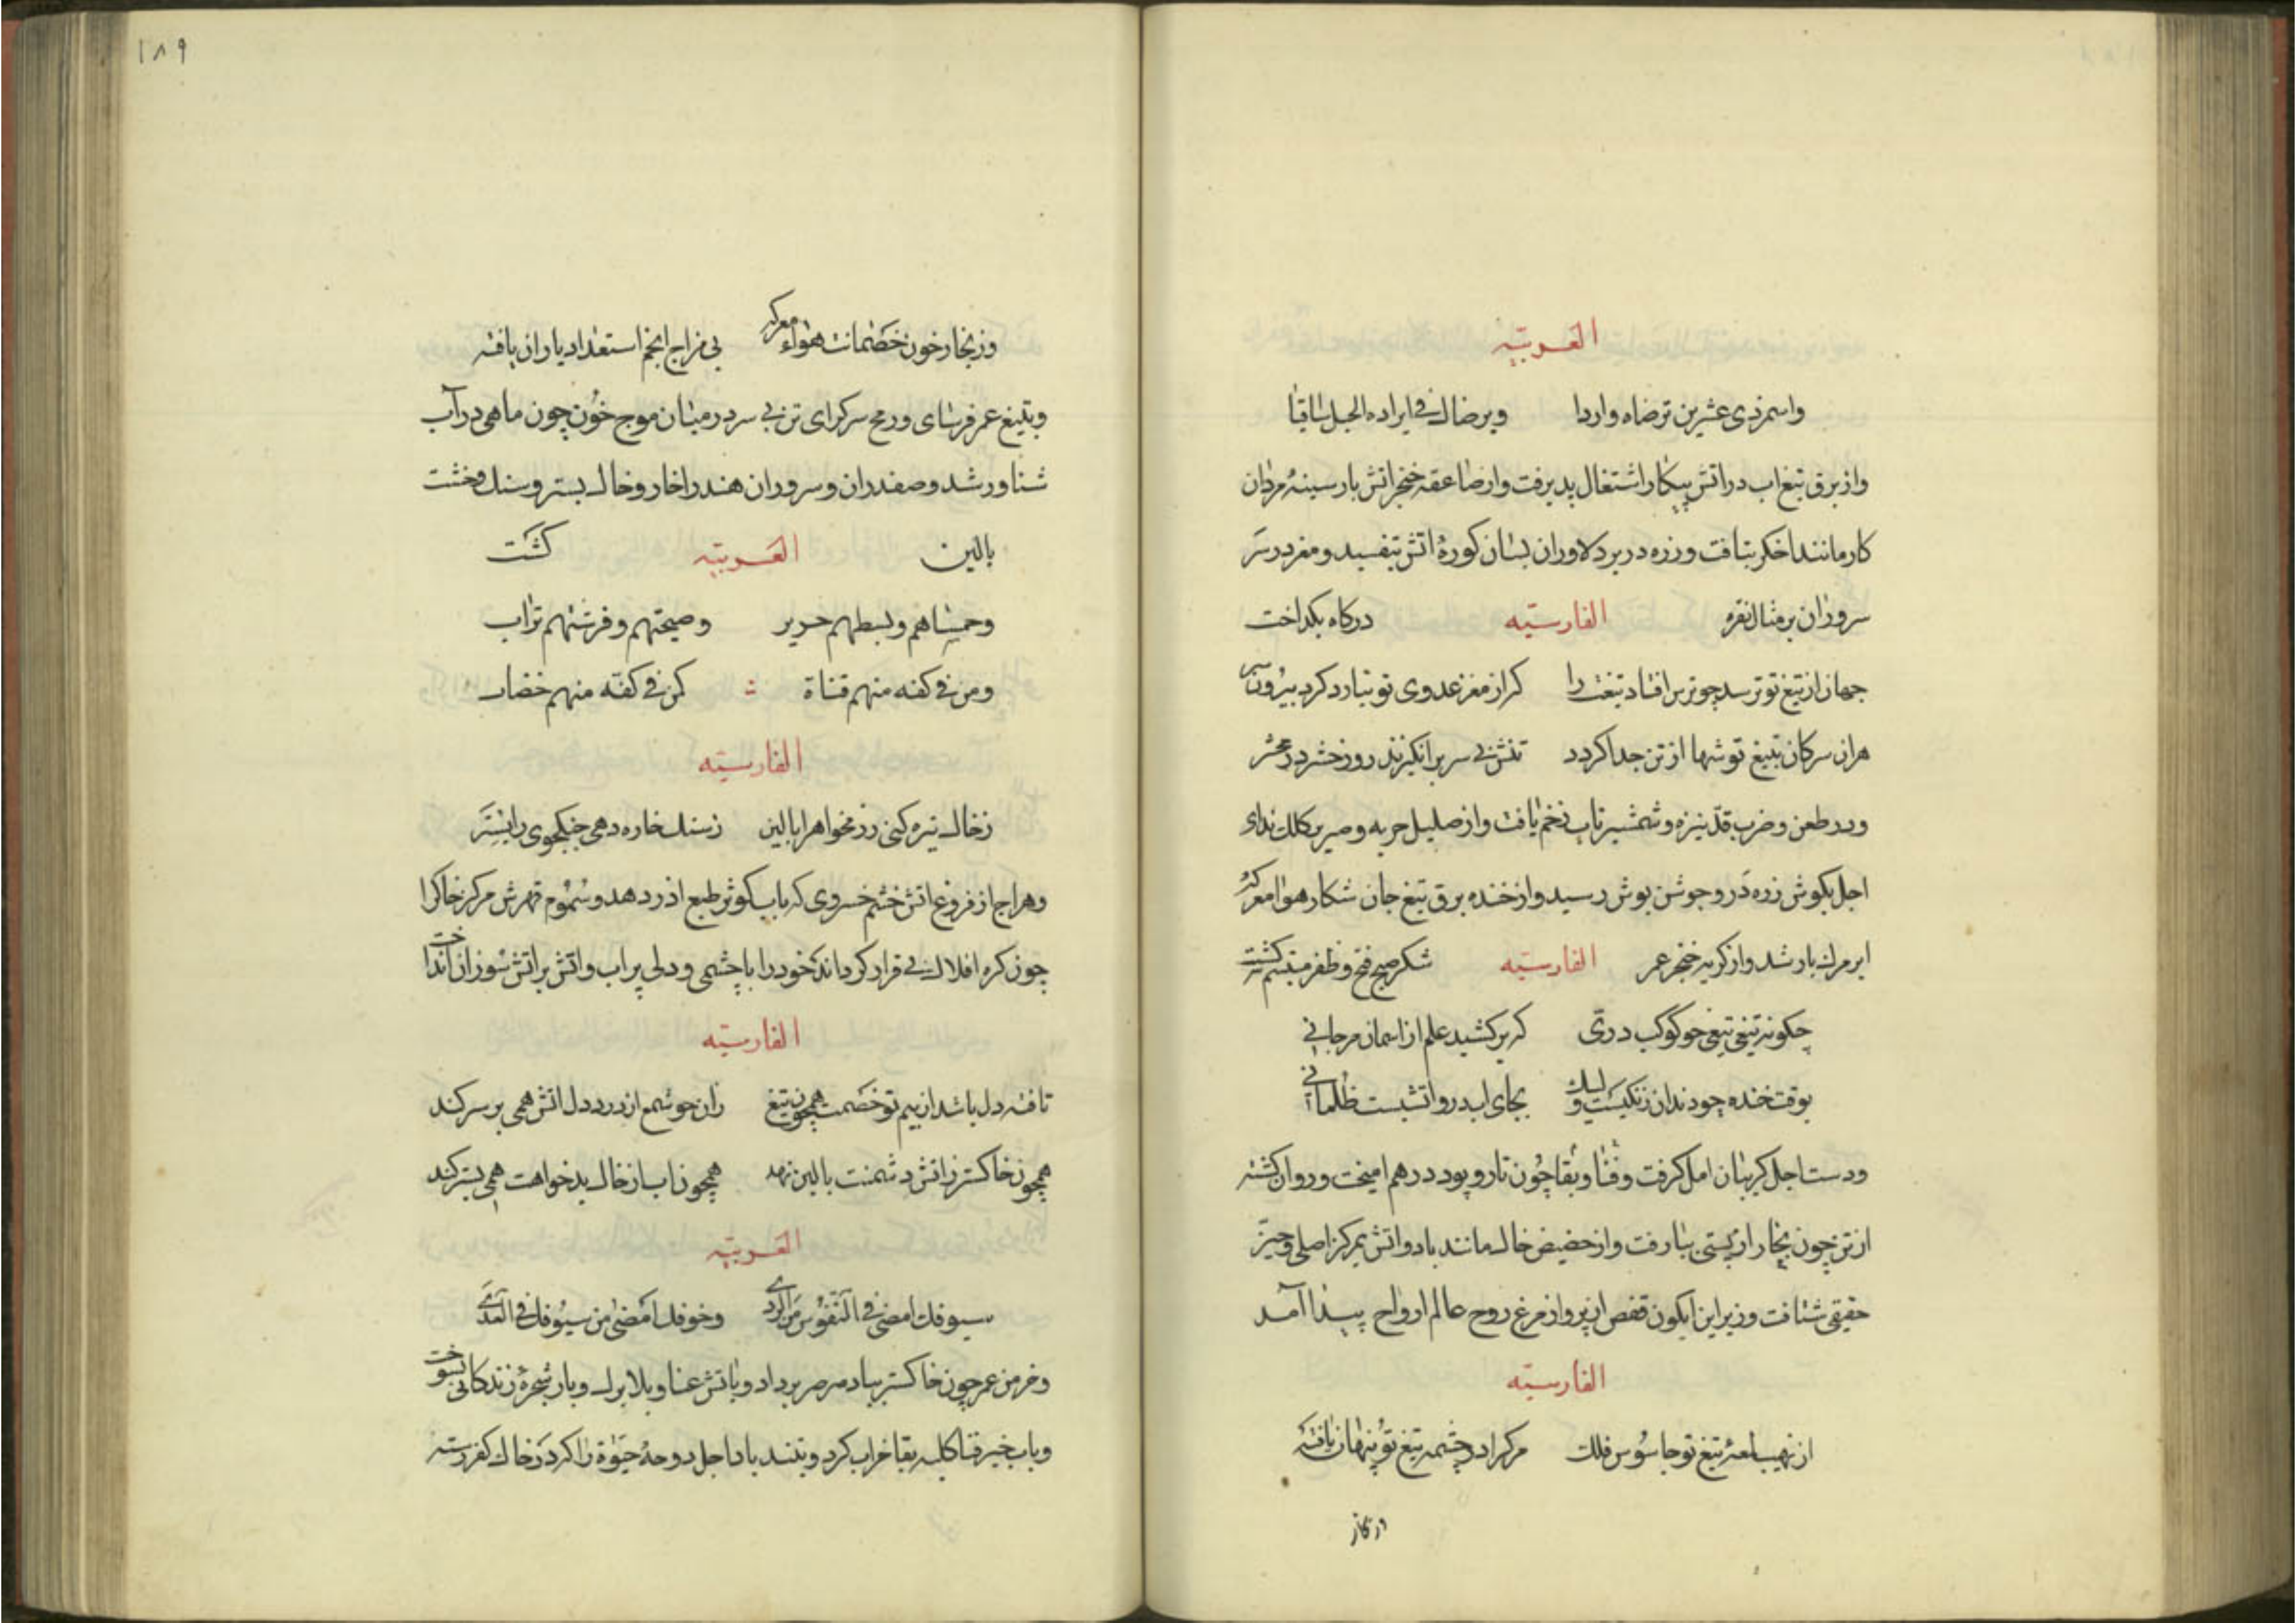 العربیّه
واسمر ذی عشرین ترضاه واردا ویرضاک فی ایراده الخیل ساقیا
واز برق تیغ اب در اتش پیکار اشتعال پدیرفت وازصاعقه خنجر اتش بار سینهٔ مردان
کار مانند اخکر بتافت و زره در بر دلاوران بسان کورهٔ اتش بتفسید و مغز در سر
سروران بر مثال نقره الفارسیّه در کاه بکداخت
جهان از تیغ تو ترسد چو تر بر افتاد تیغت را کر از مغز عدوی تو نیارد کرد بیرون سر
هران سر کان بتیغ تو شها از تن جدا کردد تنش بی سر برانکیزند روز حشر در محشر
ودر طعن و ضرب قدّ نیزه و شمشیر تاب و خم یافت واز صلیل حربه و صریر کلک ندای
اجل بکوش زره در و جوشن بوش رسید واز خنده برق تیغ جان شکار هوا معرکهٔ
ابر مرک بار شد واز کریه خنجر عمر الفارسیّه شکر صبح فتح و ظفر متبسم کشت
چکونه تیغی تیغی چو کوکب درّی که بر کشید علم از اسمان مرجانی
بوقت خنده چو دندان زنکیست ولیک بجای لب در و اتشست ظلمانی
ودست اجل کریبان امل کرفت و فنا و بقا چون تار و پود در هم امیخت و روان کشته
از تن چون بخار از پستی ببالا رفت واز حضیض خاک مانند باد و اتش بمرکز اصلی و حیّز
حقیقی شتافت وزیر این ایکون قفص از پرواز مرغ روح عالم ارواح پیدا آمد
الفارسیّه
از نهیب لمعهٔ تیغ تو جاسوس فلک مرک را در چشمه تیغ تو پنهان یافته
وز بخار
۱۸۹
وز بخار خون خصمانت هواء معرکه بی مزاج انجم استعداد باران یافته
وبتیغ عمر فرسای و رمح سرکرای تن بی سر در میان موج خون چون ماهی در آب
شناور شد و صفدران و سروران هند را خار و خاک بستر و سنک و خشت
بالین العربیّه کشت
وحمساهم وبسطهم حریر وصبحتهم وفرشتهم تراب
ومن فی کفه منهم قناة کمن فی کفّه منهم خضاب
الفارسیّه
زخاک تیره کنی رزمخواه را بالین زسنک خاره دهی جنکجوی را بستر
وهراج از فروغ اتش خشم خسروی که باب کوثر طبع اذر دهد و سموم قهرش مرکز خاک را
چون کره افلاک بی قرار کرداند خود را با چشمی و دلی پر اب و اتش بر اتش سوزان انداخت
الفارسیّه
تافته دل باشد از بیم تو خصمت همچو تیغ زان چو شمع از درد دل اتش همی بر سر کند
همچو خاکستر ز اتش دشمنت بالین نهد همچو زاب از خاک بدخواهت همی بستر کند
العربیّه
سیوفک امضی فی النفوس من الردی وخوفک امضی من سیوفک فی العدی
وخرمن عمر چون خاکستر بباد صرصر برداد و باتش عنا و بلا برک و بار شجرهٔ زندکانی بسوخت
وباب خنجر فنا کلبه بقا خراب کرد و بتند باد اجل دوحهٔ حیوة را کرد خاک کفر رسته